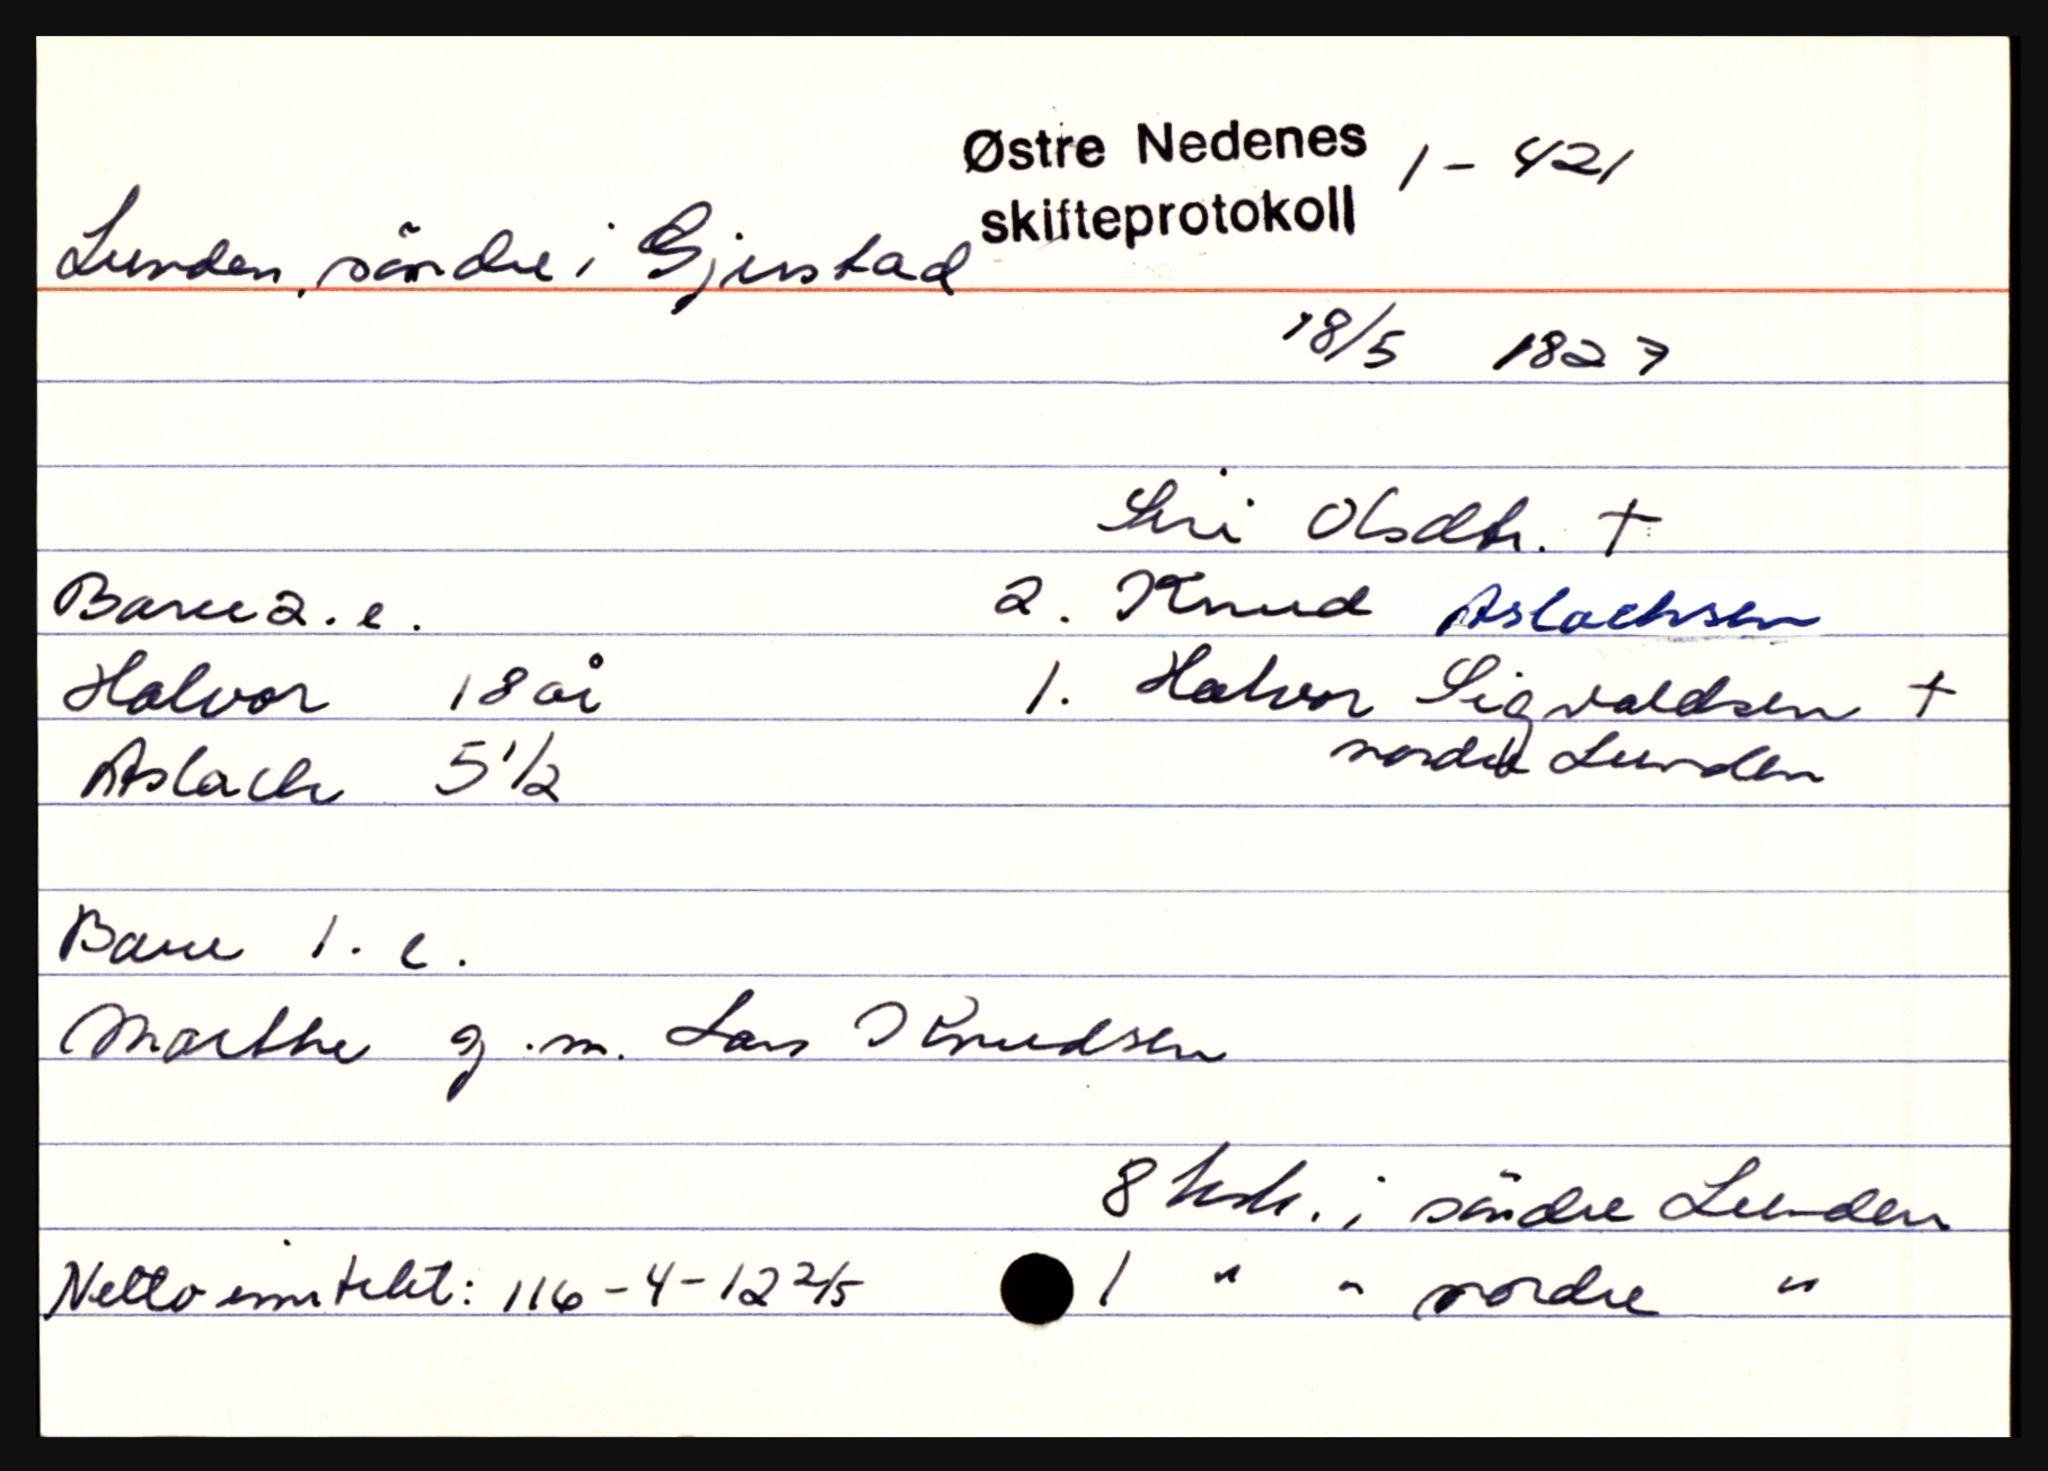 Østre Nedenes 1 - 421
skifteprotokoll
Lunden, söndre i Gjerstad
18/5 1827
Siri Olsdtr. †
Barn 2. e.
2. Knud Aslachsen
Halvor 18 år
1. Halvor Sigvaldsen †
Aslach 5 1/2
nordre Lunden
Barn 1. e.
Marthe g.m. Lars Knudsen
8 ksk. i söndre Lunden
Netto inntekt: 116 - 4 - 12 2/5
1 " " nordre "